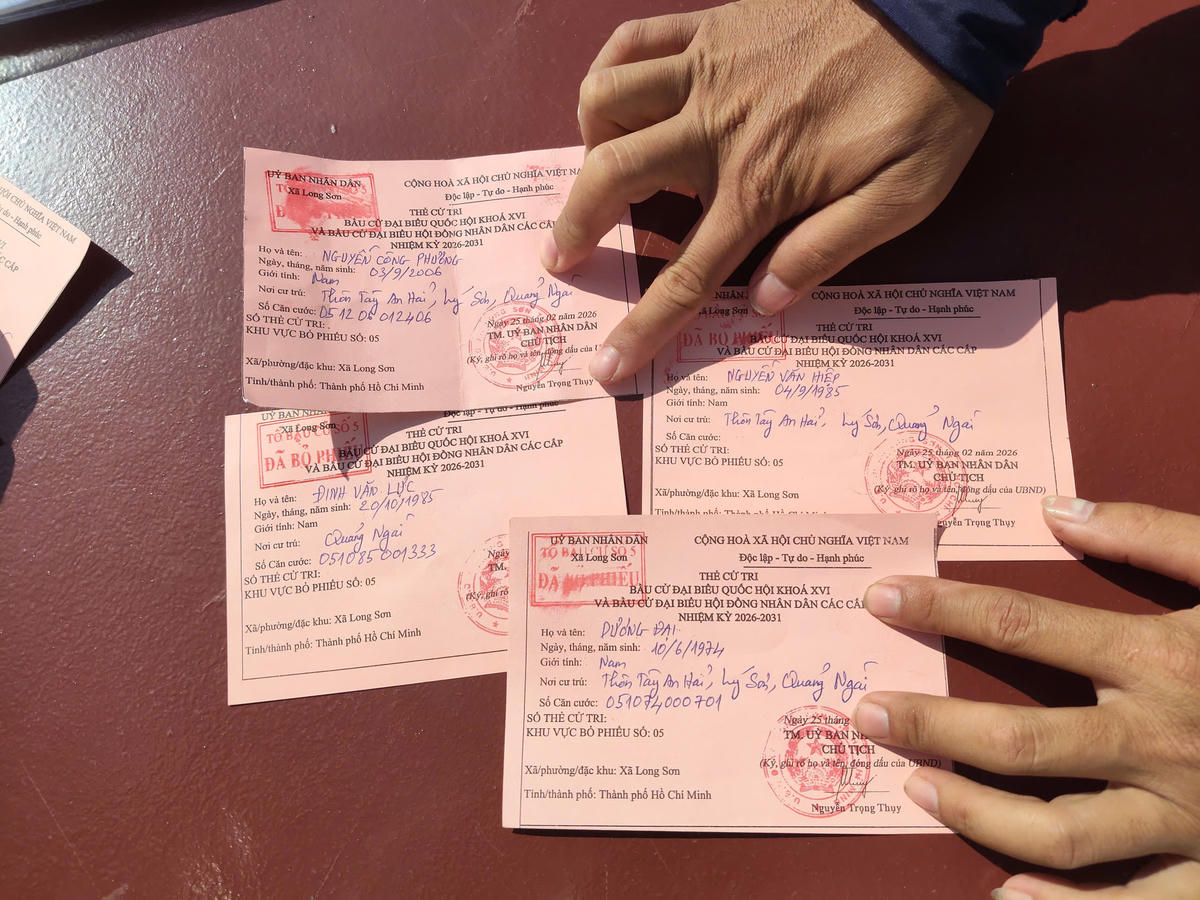 UỶ BAN NHÂN DÂN
Xã Long Sơn
CỘNG HOÀ XÃ HỘI CHỦ NGHĨA VIỆT NAM
Độc lập - Tự do - Hạnh phúc
THẺ CỬ TRI
BẦU CỬ ĐẠI BIỂU QUỐC HỘI KHOÁ XVI
VÀ BẦU CỬ ĐẠI BIỂU HỘI ĐỒNG NHÂN DÂN CÁC CẤP
NHIỆM KỲ 2026-2031
Họ và tên: NGUYỄN CÔNG PHƯỢNG
Ngày, tháng, năm sinh: 03/9/2006
Giới tính: Nam
Nơi cư trú: Thôn Tây An Hải, Lý Sơn, Quảng Ngãi
Số Căn cước: 051206012406
SỐ THẺ CỬ TRI:
KHU VỰC BỎ PHIẾU SỐ: 05
Xã/phường/đặc khu: Xã Long Sơn
Tỉnh/thành phố: Thành phố Hồ Chí Minh
Ngày 25 tháng 02 năm 2026
TM. UỶ BAN NHÂN DÂN
CHỦ TỊCH
(Ký, ghi rõ họ và tên, đóng dấu của
Nguyễn Trọng Thụy
Xã Long Sơn
ĐÃ BỎ PHIẾU
CỘNG HOÀ XÃ HỘI CHỦ NGHĨA VIỆT NAM
Độc lập - Tự do - Hạnh phúc
THẺ CỬ TRI
BẦU CỬ ĐẠI BIỂU QUỐC HỘI KHOÁ XVI
VÀ BẦU CỬ ĐẠI BIỂU HỘI ĐỒNG NHÂN DÂN CÁC CẤP
NHIỆM KỲ 2026-2031
Họ và tên: NGUYỄN VĂN HIỆP
Ngày, tháng, năm sinh: 04/9/1985
Giới tính: Nam
Nơi cư trú: Thôn Tây An Hải, Lý Sơn, Quảng Ngãi
Số Căn cước:
SỐ THẺ CỬ TRI:
KHU VỰC BỎ PHIẾU SỐ: 05
Xã/phường/đặc khu: Xã Long Sơn
Tỉnh/thành phố: Thành phố Hồ Chí Minh
Ngày 25 tháng 02 năm 2026
TM. UỶ BAN NHÂN DÂN
CHỦ TỊCH
(Ký, ghi rõ họ và tên, đóng dấu của UBND)
guyễn Trọng Thụy
UỶ BAN NHÂN DÂN
Xã Long Sơn
TỔ BẦU CỬ SỐ 5
ĐÃ BỎ PHIẾU
Độc lập - Tự do - Hạnh phúc
THẺ CỬ TRI
BẦU CỬ ĐẠI BIỂU QUỐC HỘI KHOÁ XVI
VÀ BẦU CỬ ĐẠI BIỂU HỘI ĐỒNG NHÂN DÂN CÁC CẤP
NHIỆM KỲ 2026-2031
Họ và tên: ĐINH VĂN LỰC
Ngày, tháng, năm sinh: 20/10/1985
Giới tính: Nam
Nơi cư trú: Quảng Ngãi
Số Căn cước: 051085001333
SỐ THẺ CỬ TRI:
KHU VỰC BỎ PHIẾU SỐ: 05
Xã/phường/đặc khu: Xã Long Sơn
Tỉnh/thành phố: Thành phố Hồ Chí Minh
Ngày
TM.
(Ký,
UỶ BAN NHÂN DÂN
Xã Long Sơn
TỔ BẦU CỬ SỐ 5
ĐÃ BỎ PHIẾU
CỘNG HOÀ XÃ HỘI CHỦ NGHĨA VIỆT NAM
Độc lập - Tự do - Hạnh phúc
THẺ CỬ TRI
BẦU CỬ ĐẠI BIỂU QUỐC HỘI KHOÁ XVI
VÀ BẦU CỬ ĐẠI BIỂU HỘI ĐỒNG NHÂN DÂN CÁC CẤP
NHIỆM KỲ 2026-2031
Họ và tên: DƯƠNG ĐẠI
Ngày, tháng, năm sinh: 10/6/1974
Giới tính: Nam
Nơi cư trú: Thôn Tây An Hải, Lý Sơn, Quảng Ngãi
Số Căn cước: 051074000701
SỐ THẺ CỬ TRI:
KHU VỰC BỎ PHIẾU SỐ: 05
Xã/phường/đặc khu: Xã Long Sơn
Tỉnh/thành phố: Thành phố Hồ Chí Minh
Ngày 25 tháng
TM. UỶ BAN NH
CHỦ TỊCH
(Ký, ghi rõ họ và tên, đóng dấu của UBND)
Nguyễn Trọng Thụy